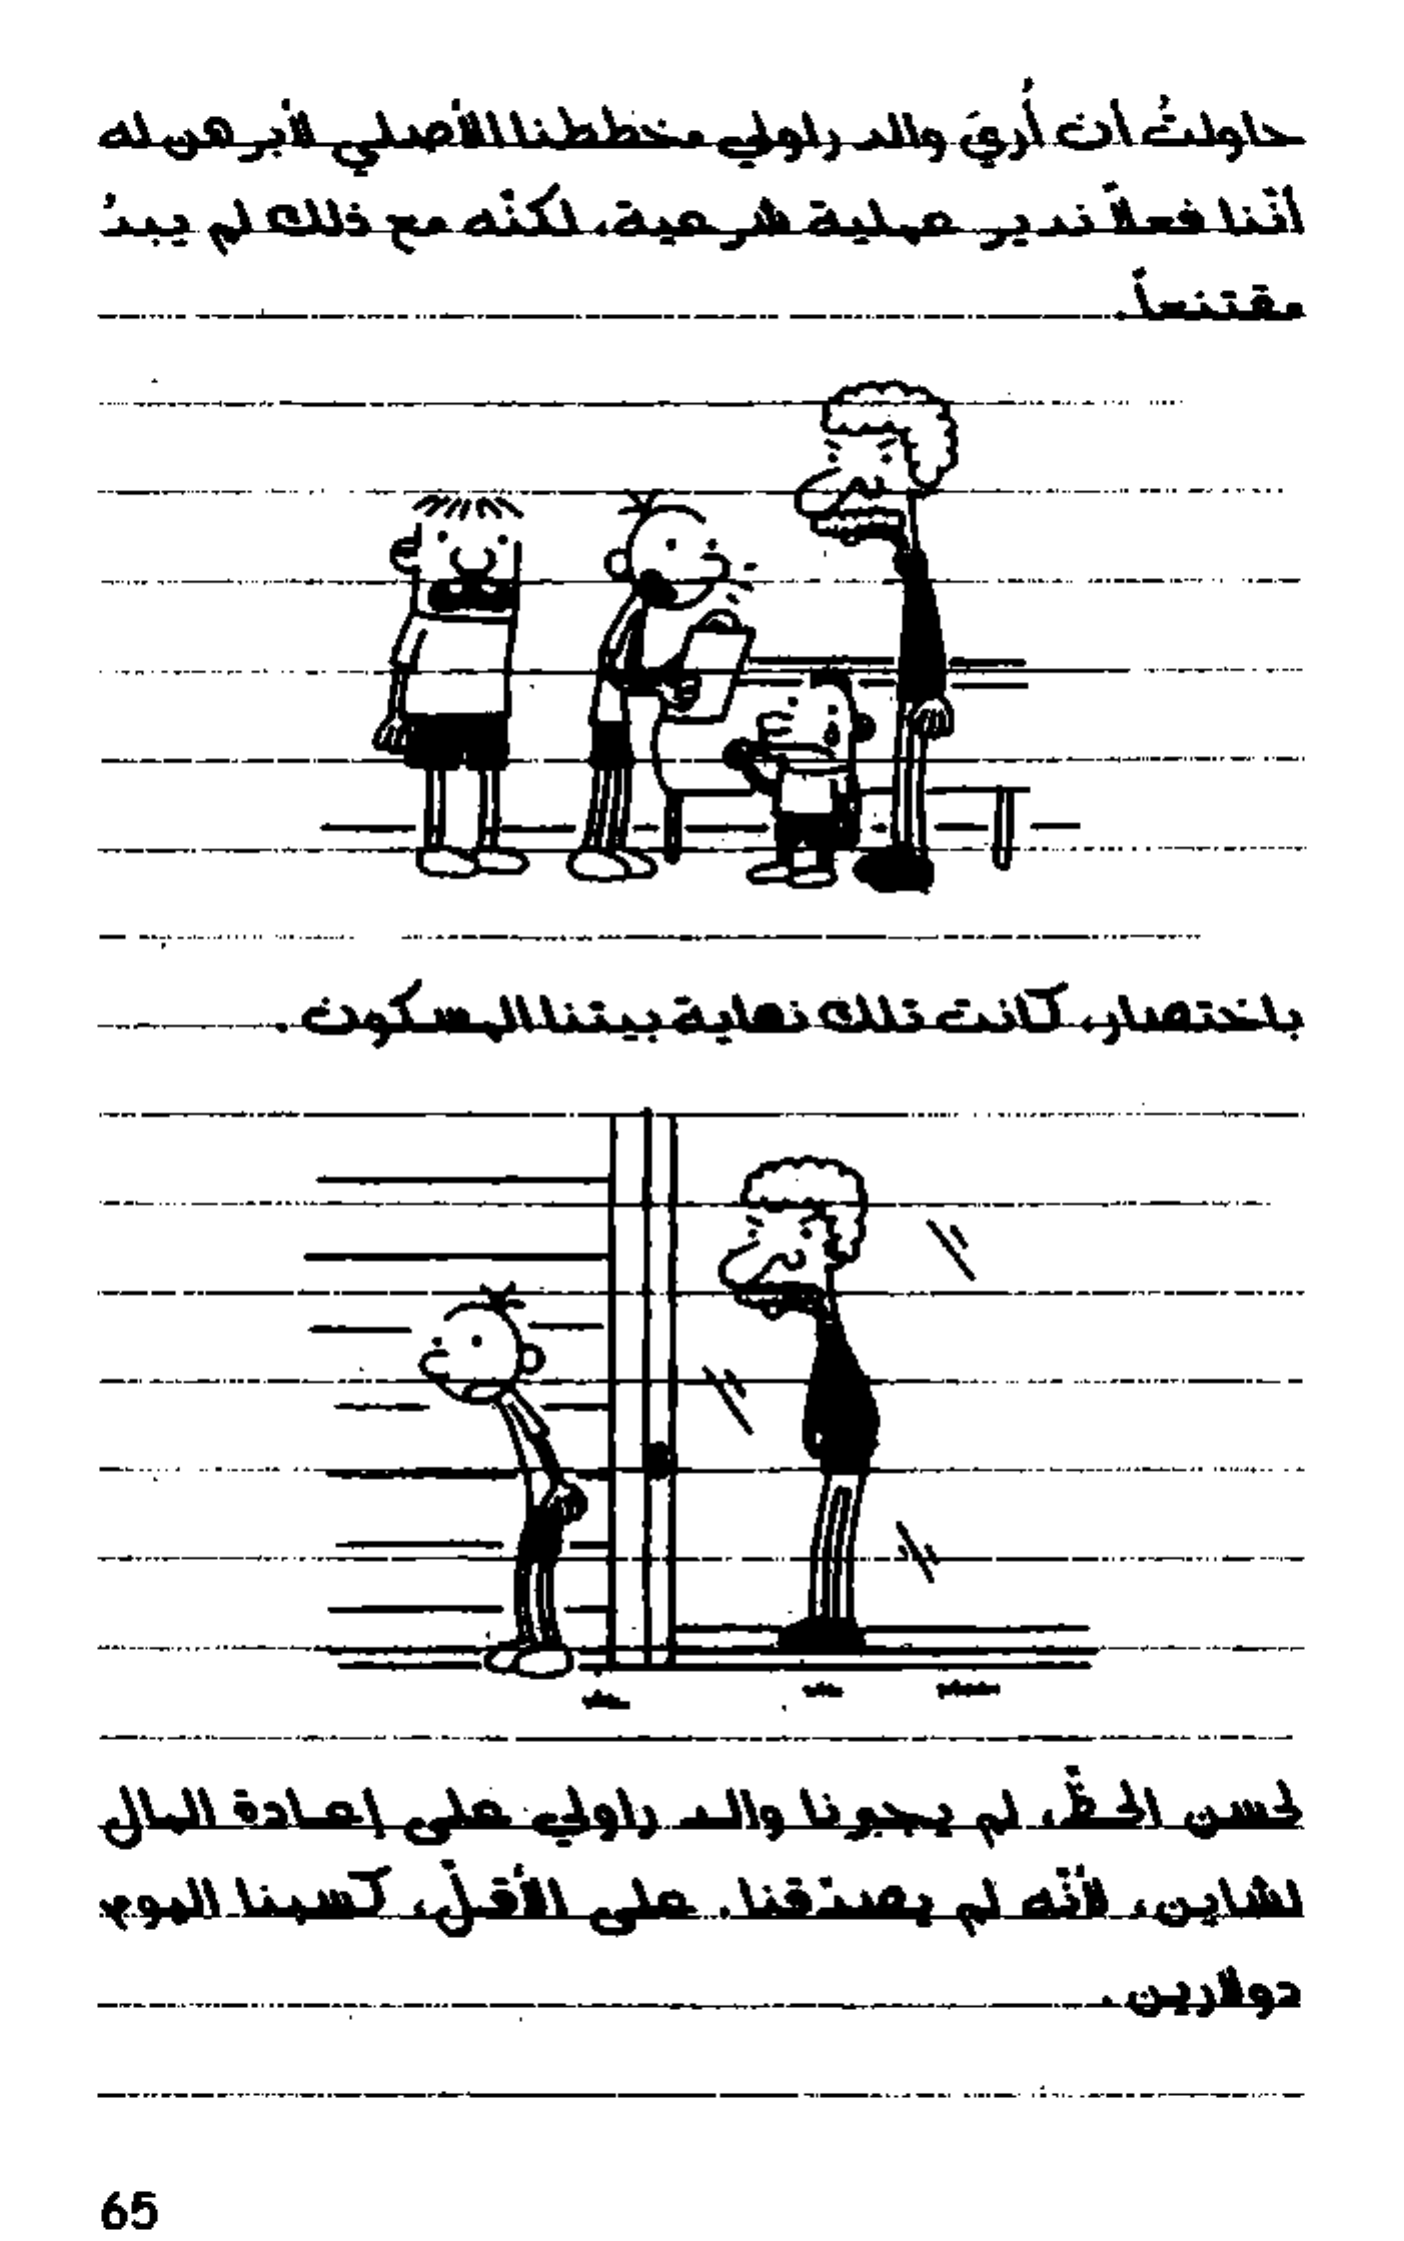 حاولتُ أن أُريَ والد راولي مخططنا الأصلي لأبرهن له
أنّنا فعلاً ندير عملية شرعية، لكنّه مع ذلك لم يبدُ
مقتنعاً.
باختصار، كانت تلك نهاية بيتنا المسكون.
لحسن الحظّ، لم يجبرنا والد راولي على إعادة المال
لشاين، لأنّه لم يصدّقنا. على الأقلّ، كسبنا اليوم
دولارين.
65